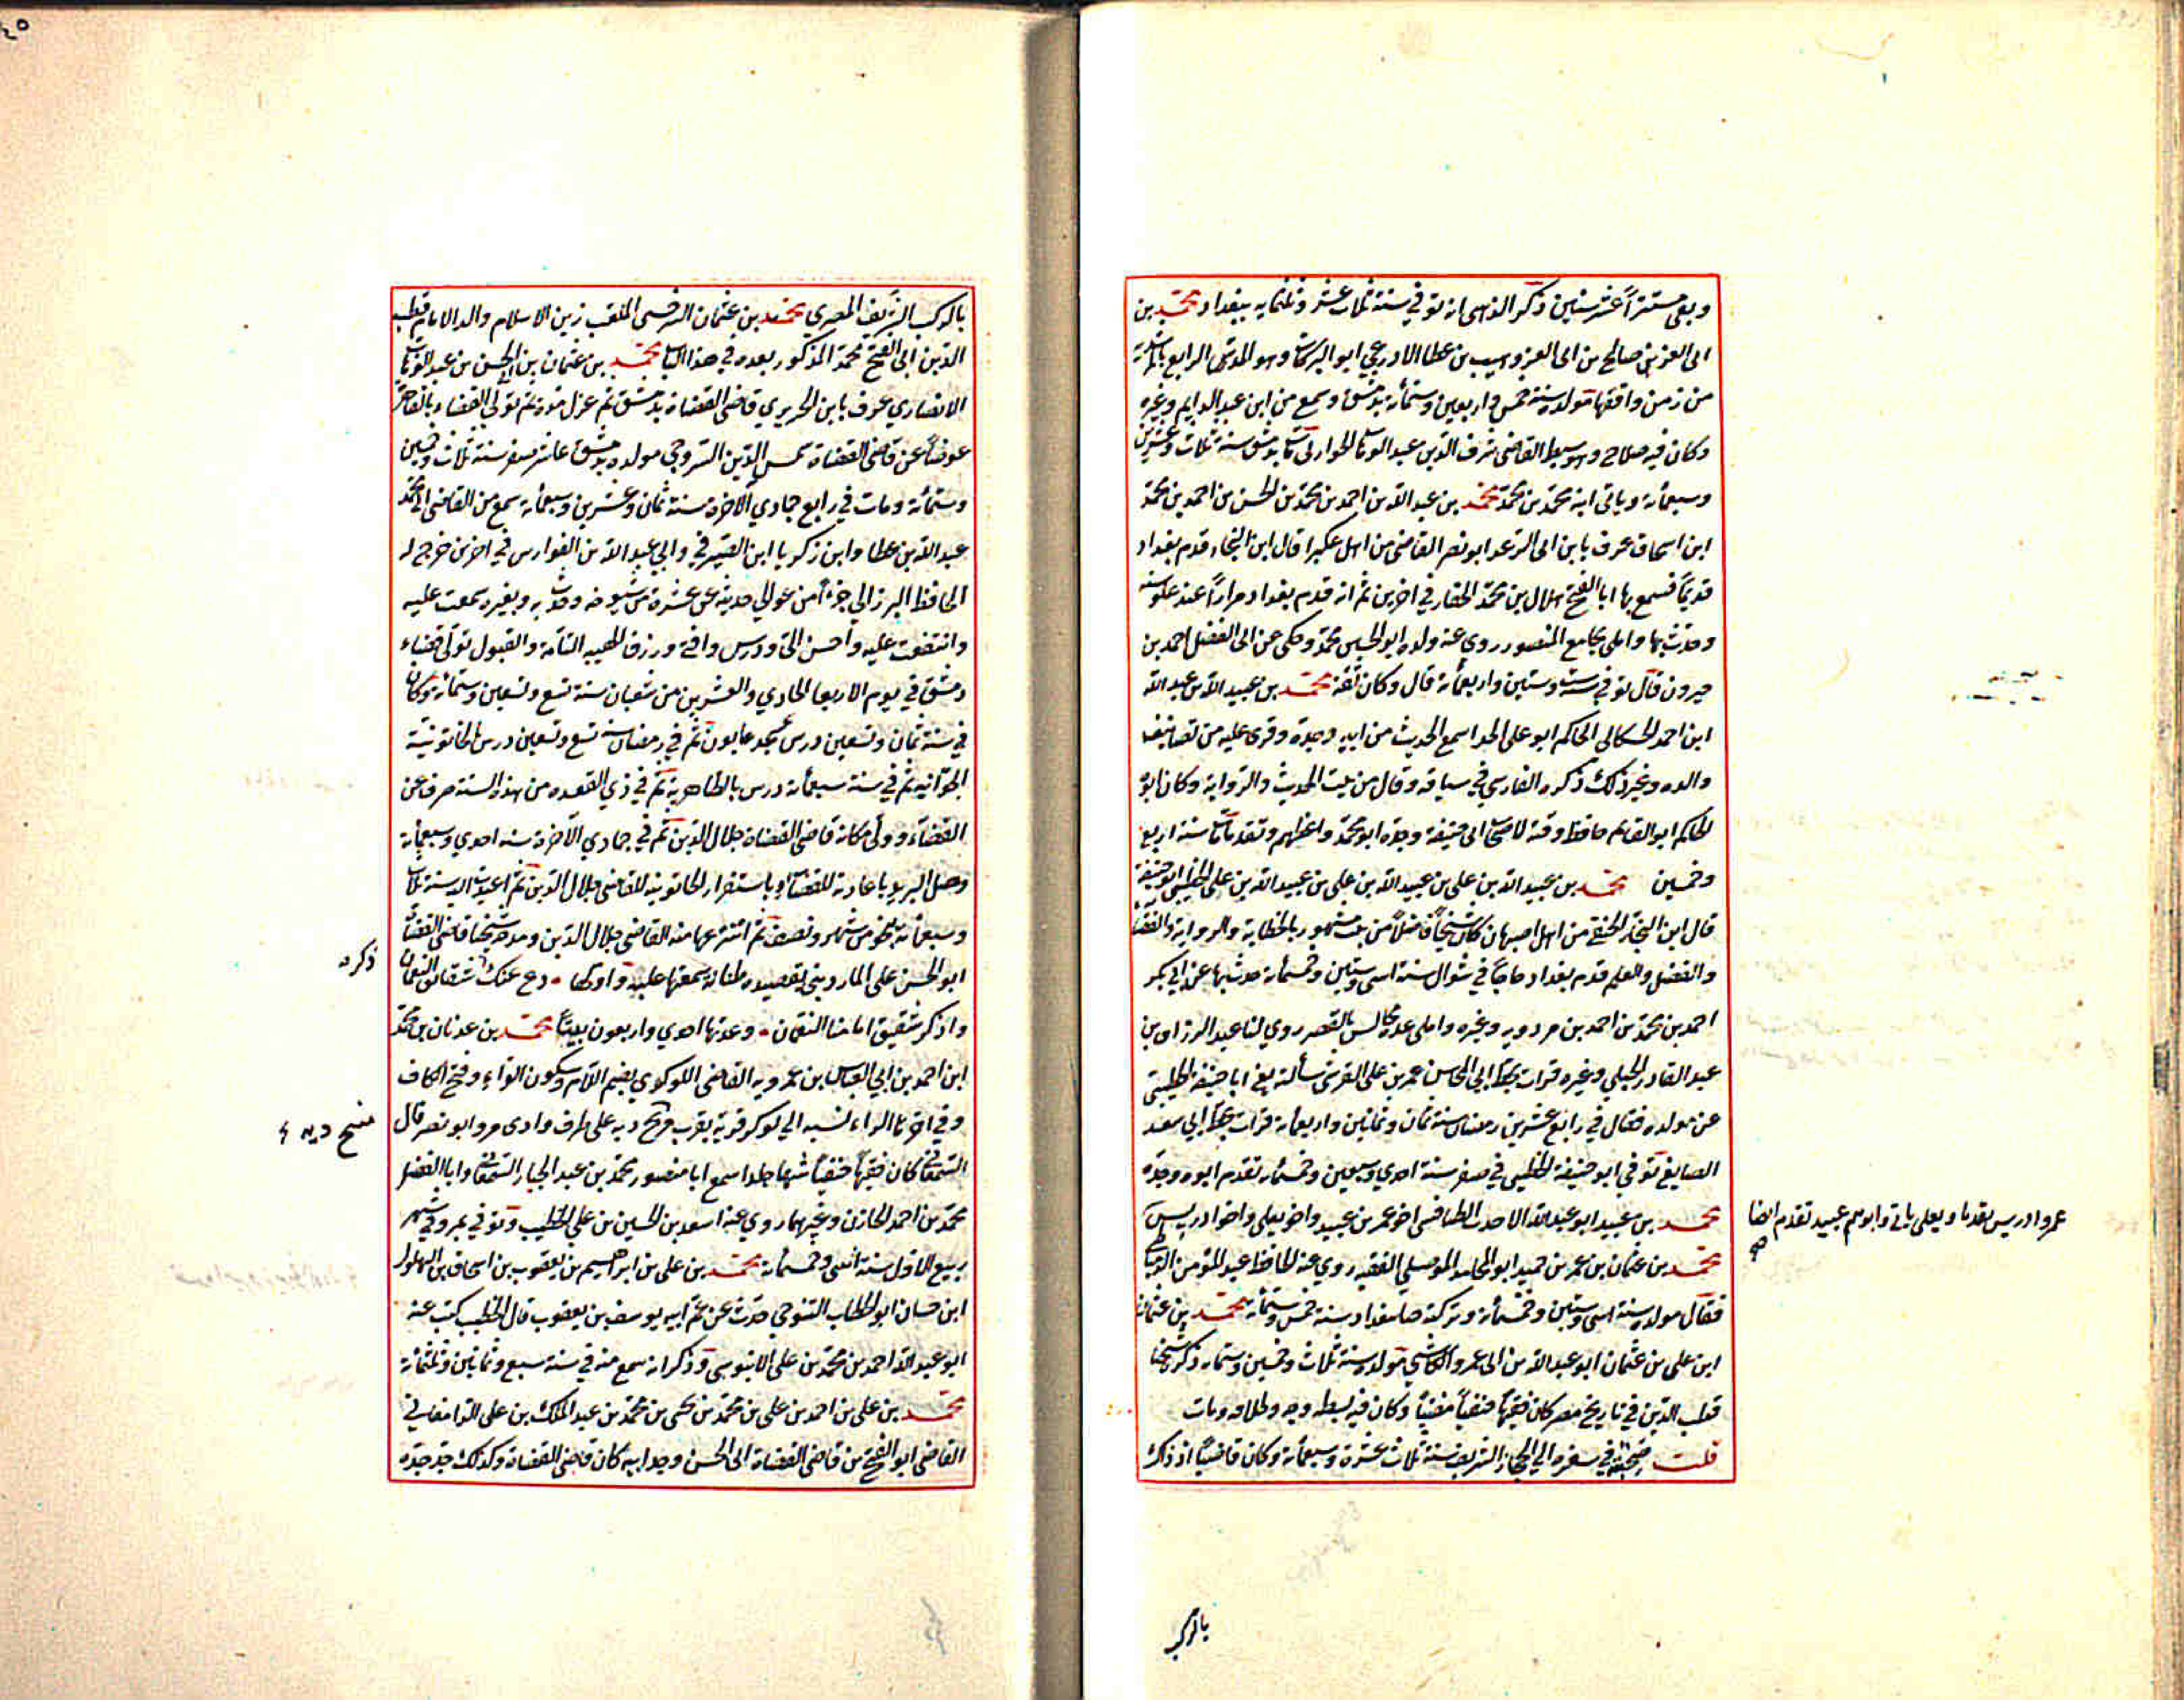 وبقي مستتراً عشر سنين ذكر الذهبي انه توفي في سنة ثلاث عشر وثلثمايه ببغداد محمد بن
ابي العز بن صالح بن ابي العز وهيب بن عطا الاذرعي ابو البركات وهو المدرس الرابع
من زمن واقفها مولده سنة خمس واربعين وستمأة بدمشق وسمع من ابن عبد الدايم وغيره
وكان فيه صلاح وهو سبط القاضي شرف الدين عبد الوهاب الحوراني مات بدمشق سنة ثلاث وعشرين
وسبعمأة ويأتي ابنه محمد بن محمد محمد بن عبد الله بن احمد بن محمد بن الحسن بن احمد بن محمد
ابن اسحاق عرف بابن ابي الرعد ابو نصر القاضي من اهل عكبرا قال ابن النجار قدم بغداد
قديماً فسمع بها ابا الفتح هلال بن محمد الحفار في اخرين ثم انه قدم بغداد مراراً عند علو سنه
وحدث بها واملى بجامع المنصور روى عنه ولده ابو الحسين محمد وحكى عن ابي الفضل احمد بن
خيرون قال توفي سنة ست وستين واربعمأة قال وكان ثقة محمد بن عبيد الله بن عبد الله
ابن احمد الحسكاني الحاكم ابو علي الحذا سمع الحديث من ابيه وجده وقرئ عليه من تصانيف
والده وغير ذلك ذكره الفارسي في سياقه وقال من بيت الحديث والرواية وكان ابوه
الحاكم ابو القاسم حافظ وقته لاصحاب ابي حنيفة وجده ابو محمد واعظهم وتقدما مات سنة اربع
وخمسين محمد بن عبيد الله بن علي بن عبيد الله بن علي بن عبيد الله بن علي الخطيبي ابو حنيفة
قال ابن النجار الحنفي من اهل اصبهان كان شيخاً فاضلاً من بيت مشهور بالخطابة والرواية والقضاء
والفضل والعلم قدم بغداد حاجاً في شوال سنة اثنين وستين وخمسمأة حدث بها عن ابي بكر
احمد بن محمد بن احمد بن مردويه وغيره واملى عدة مجالس بالقصر روى لنا عبد الرزاق بن
عبد القادر الجيلي وغيره قرأت بخط ابي المحاسن عمر بن علي القرشي سألته يعني ابا حنيفة الخطيبي
عن مولده فقال في رابع عشرين رمضان سنة ثمان وثمانين واربعمأة قرأت بخط ابي سعد
الصايغ توفي ابو حنيفة الخطيبي في صفر سنة احدى وسبعين وخمسمأة تقدم ابوه وجده
محمد بن عبيد ابو عبد الله الاحدب الطنافسي اخو عمر بن عبيد واخو يعلى واخو ادريس
عمر وادريس تقدما ويعلى يأتي وابوهم عبيد تقدم ايضا
صح
محمد بن عثمان بن عمر بن حميد ابو المحامد الموصلي الفقيه روى عنه الحافظ عبد المؤمن الدمياطي
فقال مولده سنة اثنين وستين وخمسمأة وتركته حيا ببغداد سنة خمس وستمأة محمد بن عثمان
ابن علي بن عثمان ابو عبد الله بن ابي عمرو الكاشي مولده سنة ثلاث وخمسين وستمأة ذكره شيخنا
قطب الدين في تاريخ مصر كان فقيهاً حنفياً مفتياً وكان فيه بسطة وجه وطلاقة ومات
قلت صحبته في سفره الى الحجاز الشريف سنة ثلاث عشرة وسبعمأة وكان قاضياً اذ ذاك
بالركب
بالركب الشريف المصري محمد بن عثمان السرخسي الملقب زين الاسلام والد الامام قطب
الدين ابي الفتح محمد المذكور بعده في هذا الباب محمد بن عثمان بن ابي الحسن بن عبد الوهاب
الانصاري عرف بابن الحريري قاضي القضاة بدمشق ثم عزل مدة ثم تولى القضاء بالقاهرة
عوضاً عن قاضي القضاة شمس الدين السروجي مولده بدمشق عاشر صفر سنة ثلاث وخمسين
وستمأة ومات في رابع جمادي الآخرة سنة ثمان وعشرين وسبعمأة سمع من القاضي ابي محمد
عبد الله بن عطا وابن زكريا ابن الصيرفي وابي عبد الله بن الفوارس في اخرين خرج له
الحافظ البرزالي جزءاً من عوالي حديثه عن عشرة من شيوخه وحدث به وبغيره سمعت عليه
وانتفعت عليه واحسن الي ودرس وافتى ورزق الهيبه التامة والقبول تولى قضاء
دمشق في يوم الاربعا الحادي والعشرين من شعبان سنة تسع وتسعين وستمأة وكان
في سنة ثمان وتسعين درس بمسجد عابون ثم في رمضان سنة تسع وتسعين درس بالخاتونية
الجوانيه ثم في سنة سبعمأة درس بالظاهرية ثم في ذي القعده من هذه السنة صرف عن
القضاء وولي مكانه قاضي القضاة جلال الدين ثم في جمادي الآخرة سنة احدى وسبعمأة
وصل البريد باعادته للقضاء وباستقرار الخاتونية للقاضي جلال الدين ثم اعيدت اليه سنة ثلاث
وسبعمأة بنحو من شهر ونصف ثم انتزعها منه القاضي جلال الدين ومدحه شيخنا قاضي القضاة
ذكره
ابو الحسن علي المارديني بقصيده طنانة سمعتها عليه واولها ٠ دع عنك ذكر شقائق النعمان
واذكر شقيق امامنا النعمان ٠ وعدتها احدى واربعون بيتاً محمد بن عدنان بن محمد
ابن احمد بن ابي العباس بن عمرويه القاضي اللوكري بضم اللام وسكون الواو وفتح الكاف
وفي اخرها الراء نسبه الي لوكر قرية بقرب فنج ديه على طرف وادي مرو ابو نصر قال
فنج ديه
السمعاني كان فقيهاً حنفياً شهما جلدا سمع ابا منصور محمد بن عبد الجبار السمعاني وابا الفضل
محمد بن احمد الخازن وغيرهما روى عنه اسعد بن الحسين بن علي الخطيب وتوفي بمرو في شهر
ربيع الاول سنة اثنين وخمسمأة محمد بن علي بن ابراهيم بن يعقوب بن اسحاق بن البهلول
ابن حسان ابو الخطاب التنوخي حدث عن عم ابيه يوسف بن يعقوب قال الخطيب كتب عنه
ابو عبد الله احمد بن محمد بن علي الابنوسي وذكر انه سمع منه في سنة سبع وثمانين وثلثمأة
محمد بن علي بن احمد بن علي بن محمد بن يحيى بن محمد بن عبد الملك بن علي الدامغاني
القاضي ابو الفتح بن قاضي القضاة ابي الحسن وجد ابيه كان قاضي القضاة وكذلك جد جده